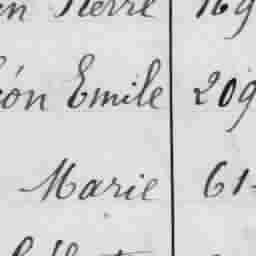 Pierre 169
éon Emile 209
Marie 61